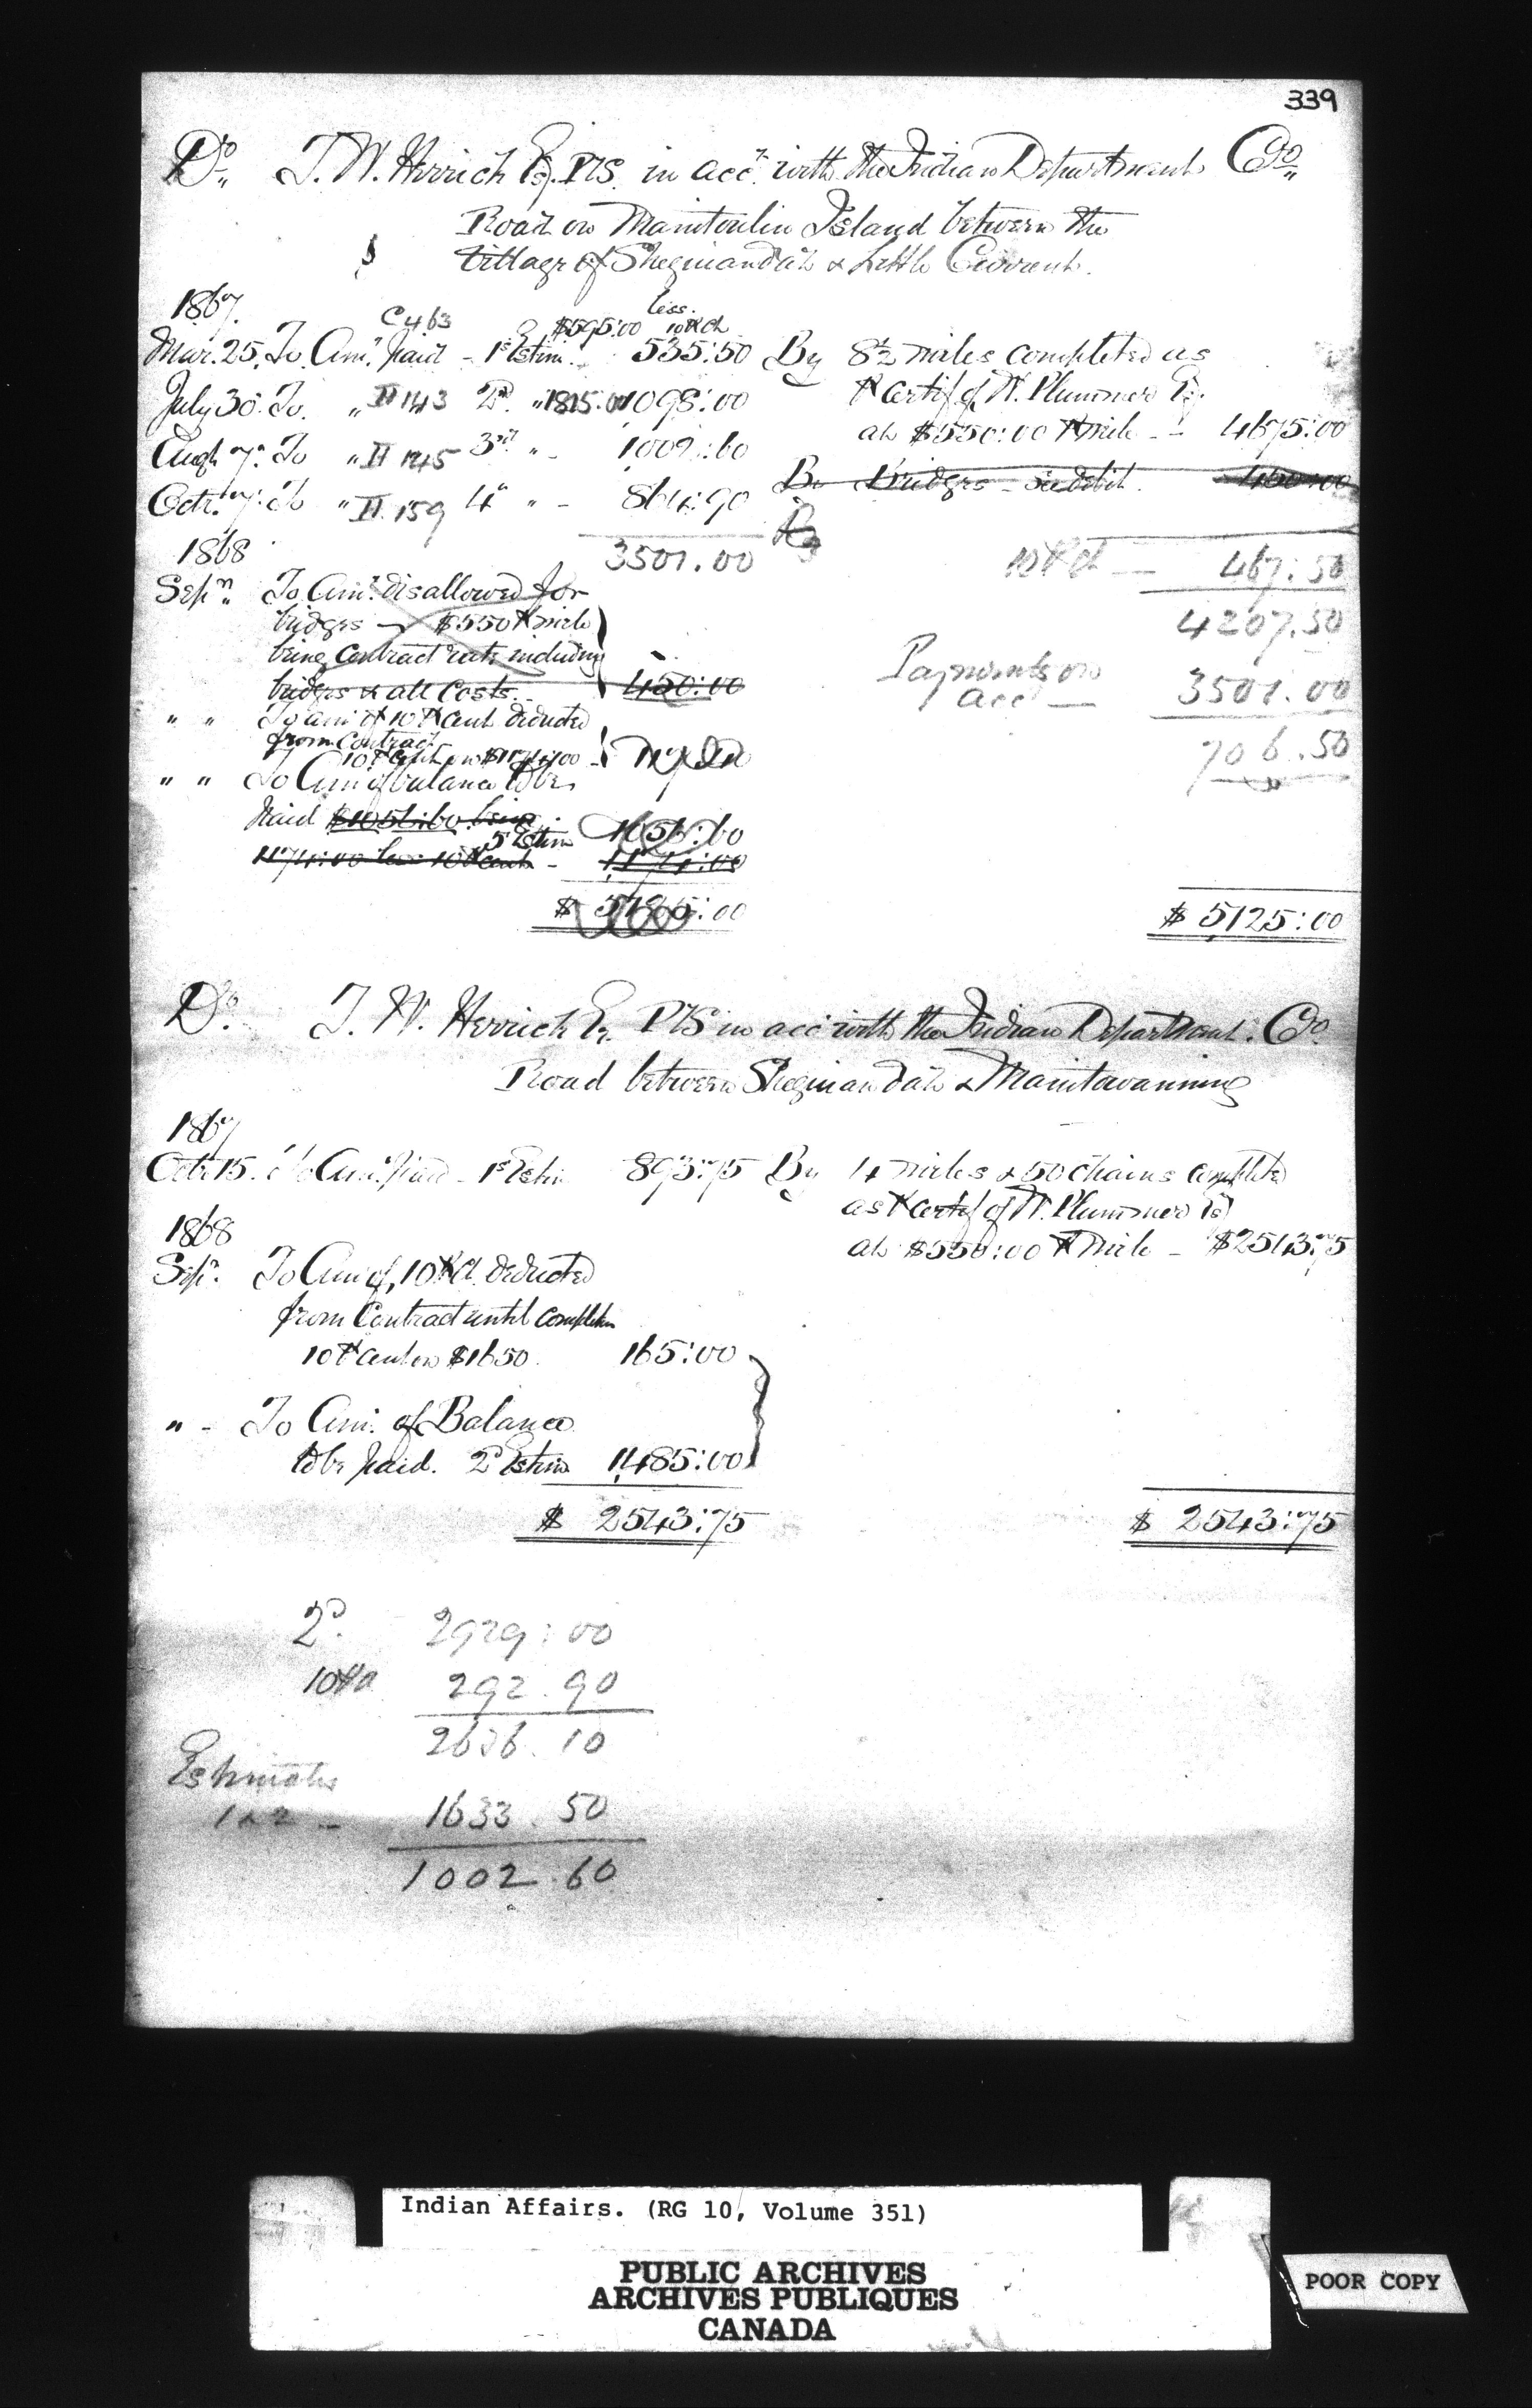 339
Dr. T. W. Herrick Esq. PLS. in acct. with the Indian Department Cr.
Road on Manitoulin Island between the
Village of Sheguiandah & Little Current.
1867.
C 463 $595:00 less 10 ⅌ Ct
Mar. 25. To Amt. paid - 1st Estim. 535:50
July 30. To " II 143 2d. " 1815:00 1098:00
Augt 7. To " II 145 3rd " - 1002:60
Octr. 7. To " II 159 4th " - 864:90
3501.00
1868
Sepr. To Amt. disallowed for
bridges - $550 ⅌ mile
being Contract rate including
bridges & all Costs. 450:00
" " To amt of 10 ⅌ Cent deducted
from Contract
10 ⅌ Cent on $1174:00
" " To Amt of balance to be
paid $1056:60 being 1056:60
5 Estim
1174:00 less 10 ⅌ cent - 1174:00
$ 5125:00
By 8½ miles completed as
⅌ Certif. of W. Plummer Esq.
at $550:00 ⅌ mile - - 4675:00
By Bridges - 450:00
By
10 ⅌ Ct — 467:50
4207.50
Payments on
acct — 3501.00
706.50
$ 5125:00
Dr. T. W. Herrick Esq. PLS in acct with the Indian Department. Cr.
Road between Sheguiandah & Manitowanning
1867
Octr 15. To Amt. paid - 1st Estim 893:75
1868
Sepr. To Amt of 10 ⅌ Ct. deducted
from Contract until completn
10 ⅌ Cent on $1650. 165:00
" - To Amt. of Balance
to be paid. 2d Estim 1485:00
$ 2543:75
By 4 miles & 50 chains completed
as ⅌ Certif of W. Plummer Esq
at $550:00 ⅌ mile - $2543:75
$ 2543:75
2d. 2929:00
292.90
2636.10
Estimates
1 & 2 - 1633.50
1002.60
Indian Affairs. (RG 10, Volume 351)
PUBLIC ARCHIVES
ARCHIVES PUBLIQUES
CANADA
POOR COPY